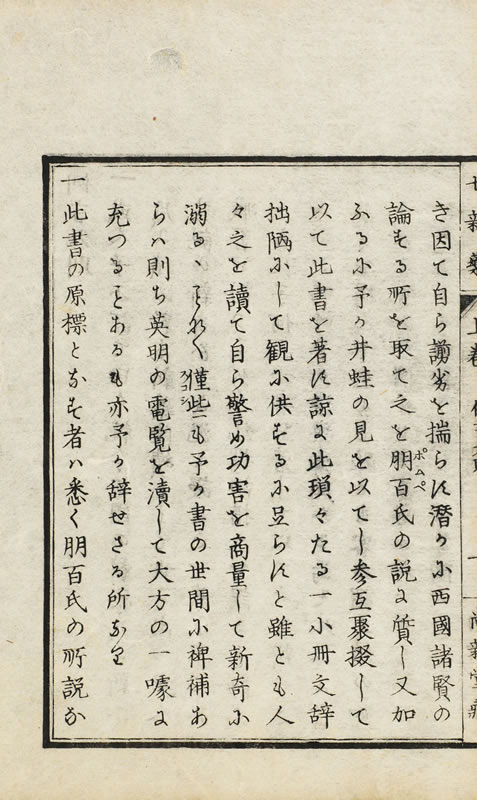 七新薬 上巻
尚新堂蔵
き因て自ら謭劣を揣らに潜かに西國諸賢の
論する所を取て之を朋百氏の説に質し又加
ポムペ
ふるに予か井蛙の見を以てし参互聚掇して
以て此書を著に諒に此瑣々たる一小冊文辞
拙陋にして観に供するに足らにと雖とも人
々之を讀て自ら警め功害を商量して新奇に
溺るゝことなく僅些も予か書の世間に裨補あ
スコシ
らハ則ち英明の電覧を瀆して大方の一噱に
充つることあるも亦予か辞せさる所なり
一此書の原標となす者ハ悉く朋百氏の所説な